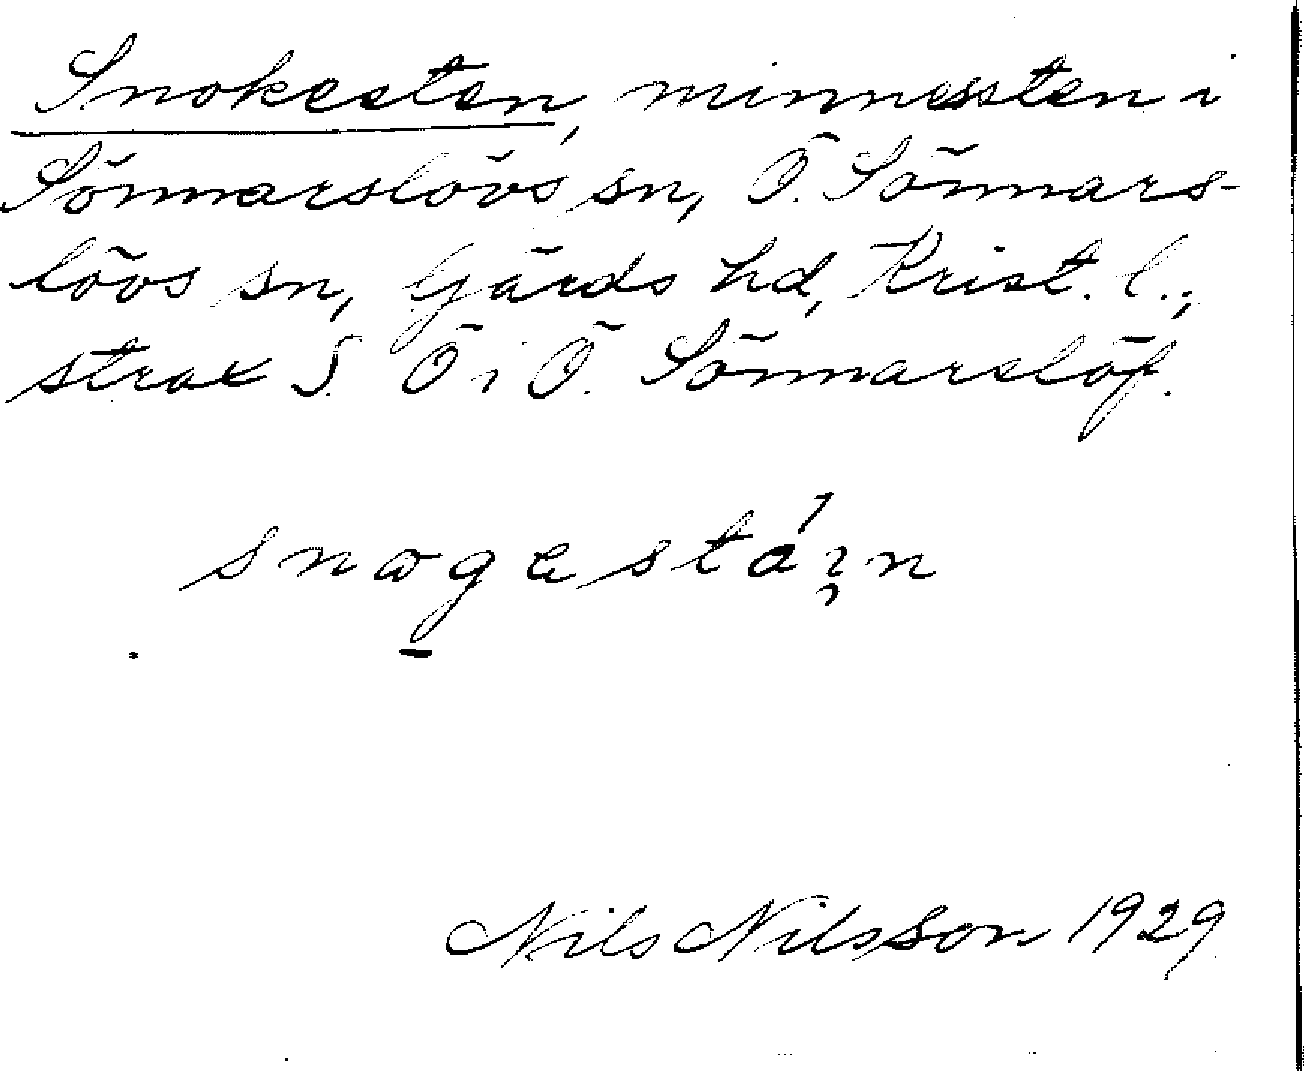 Snokesten, minnessten i
Sönnarslövs sn, Ö. Sönnars-
lövs sn, Gärds hd, Krist. l.,
strax S. Ö i Ö. Sönnarslöf.
Nils Nilsson 1929